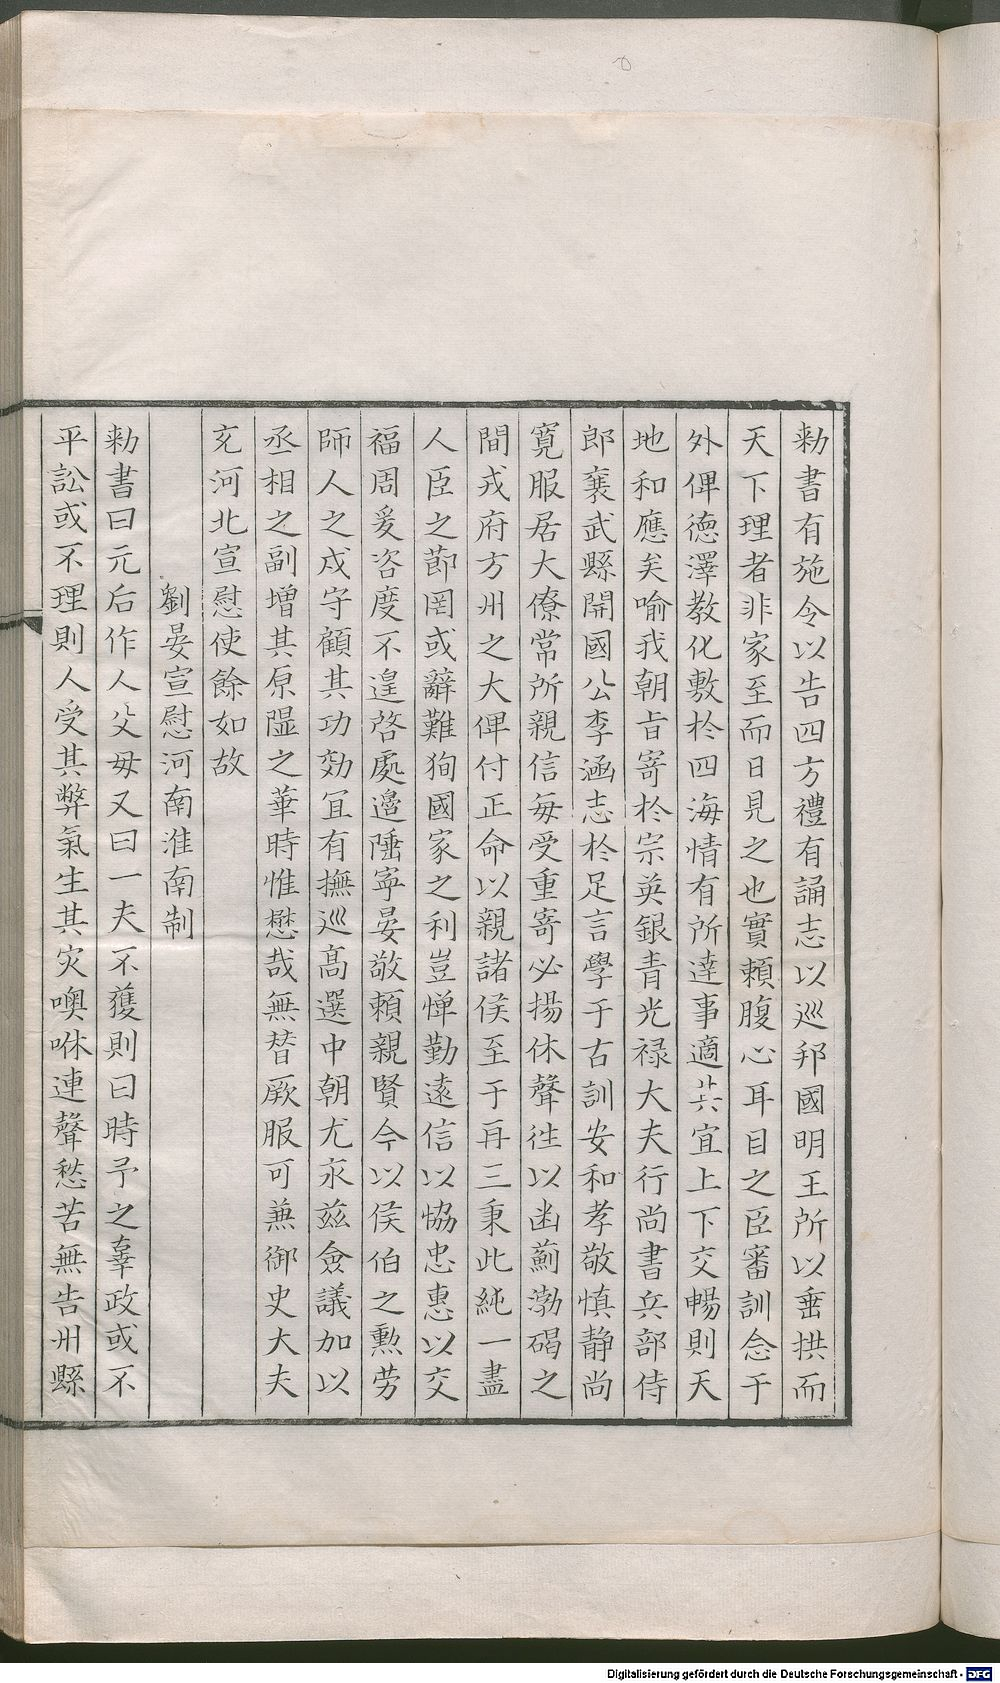 勑書有施令以告四方禮有誦志以巡邦國明王所以垂拱而
天下理者非家至而日見之也實賴腹心耳目之臣審訓念于
外俾德澤教化敷於四海情有所達事適共宜上下交暢則天
地和應矣喻我朝旨寄於宗英銀青光禄大夫行尚書兵部侍
郎襄武縣開國公李涵志於足言學于古訓安和孝敬慎静尚
寬服居大僚常所親信每受重寄必揚休聲往以幽薊渤碣之
間戎府方州之大俾付正命以親諸侯至于再三秉此純一盡
人臣之節罔或辭難狥國家之利豈憚勤遠信以協忠惠以交
福周爰咨度不遑啓處邉陲寧晏敬頼親賢今以侯伯之勲劳
師人之戍守顧其功効冝有撫巡髙選中朝尤永兹僉議加以
丞相之副增其原隰之華時惟懋哉無替厥服可蕪御史大夫
充河北宣慰使餘如故
劉晏宣慰河南淮南制
勑書曰元后作人父母又曰一夫不獲則曰時予之辜政或不
平訟或不理則人受其弊氣生其灾噢咻連聲愁苦無告州縣
Digitalisierung gefördert durch die Deutsche Forschungsgemeinschaft - DFG